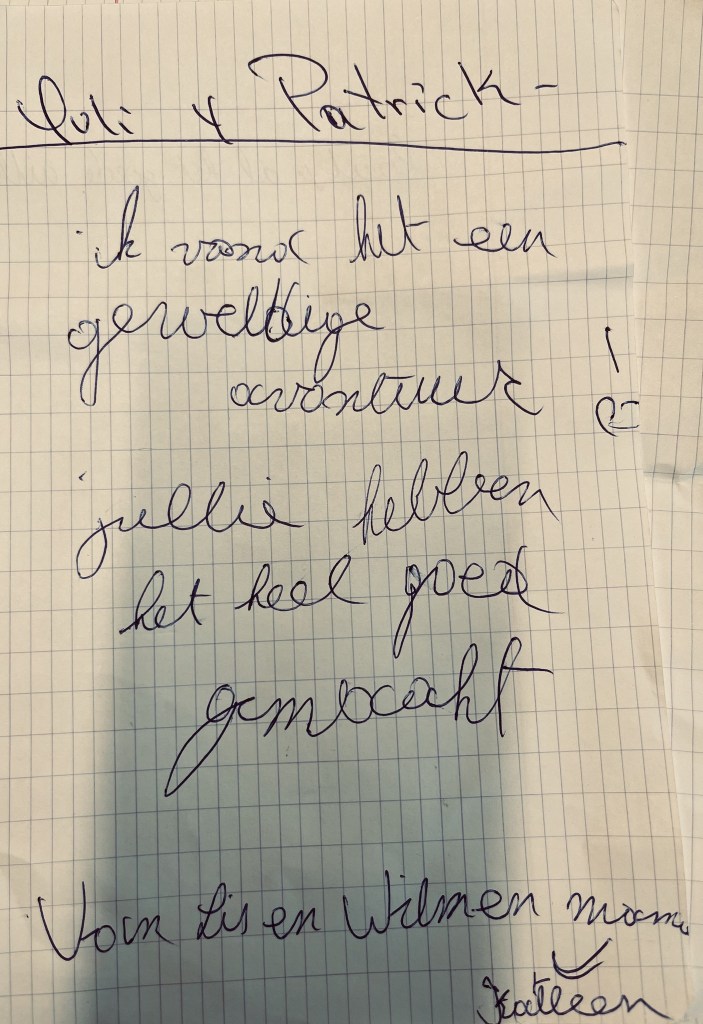 Yuli & Patrick -
ik vond het een
geweldige
avontuur !
jullie hebben
het heel goed
gemaakt
Van Lis en Wilmen mama
Katleen